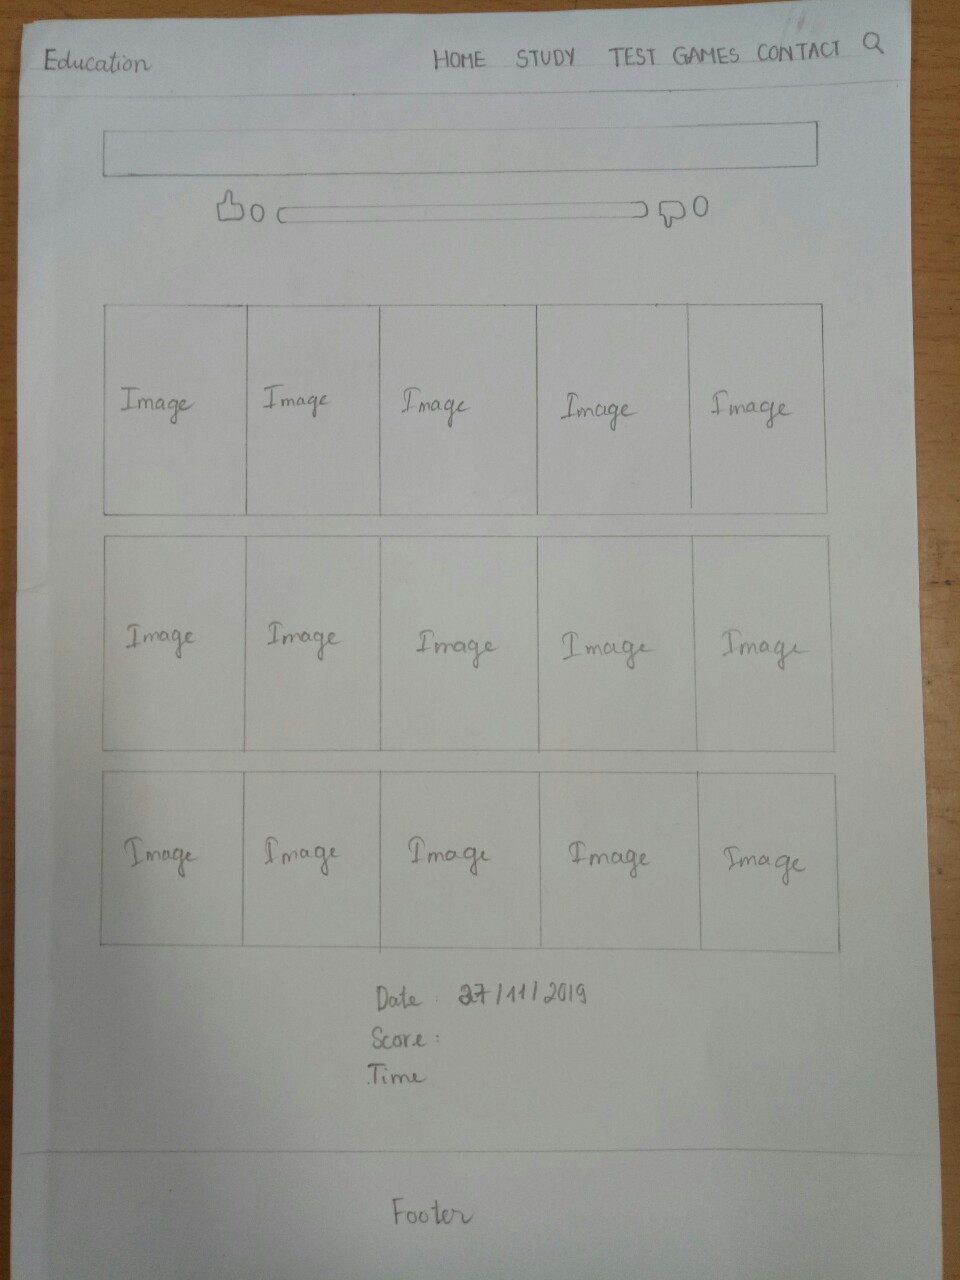 Education HOME STUDY TEST GAMES CONTACT
0 0
Image Image Image Image Image
Image Image Image Image Image
Image Image Image Image Image
Date . 27/11/2019
Score :
Time
Footer